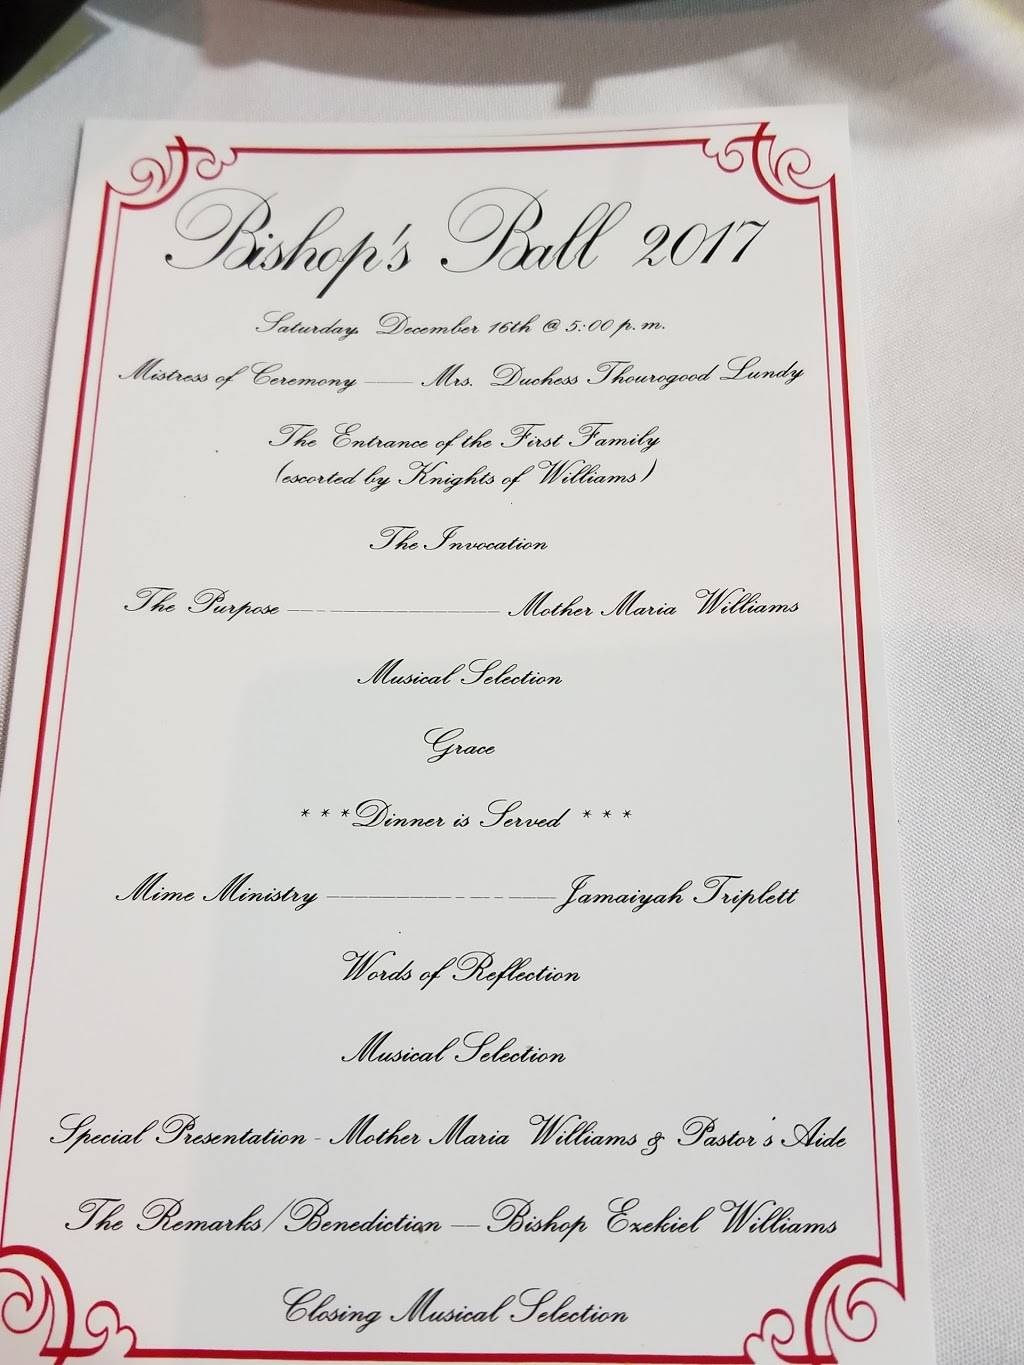 Bishop's Ball 2017
Saturday, December 16th @ 5:00 p.m.
Mistress of Ceremony —— Mrs. Duchess Thourogood Lundy
The Entrance of the First Family
(escorted by Knights of Williams)
The Invocation
The Purpose ------------------ Mother Maria Williams
Musical Selection
Grace
***Dinner is Served ***
Mime Ministry ------------------ Jamaiyah Triplett
Words of Reflection
Musical Selection
Special Presentation - Mother Maria Williams & Pastor's Aide
The Remarks/Benediction —— Bishop Ezekiel Williams
Closing Musical Selection